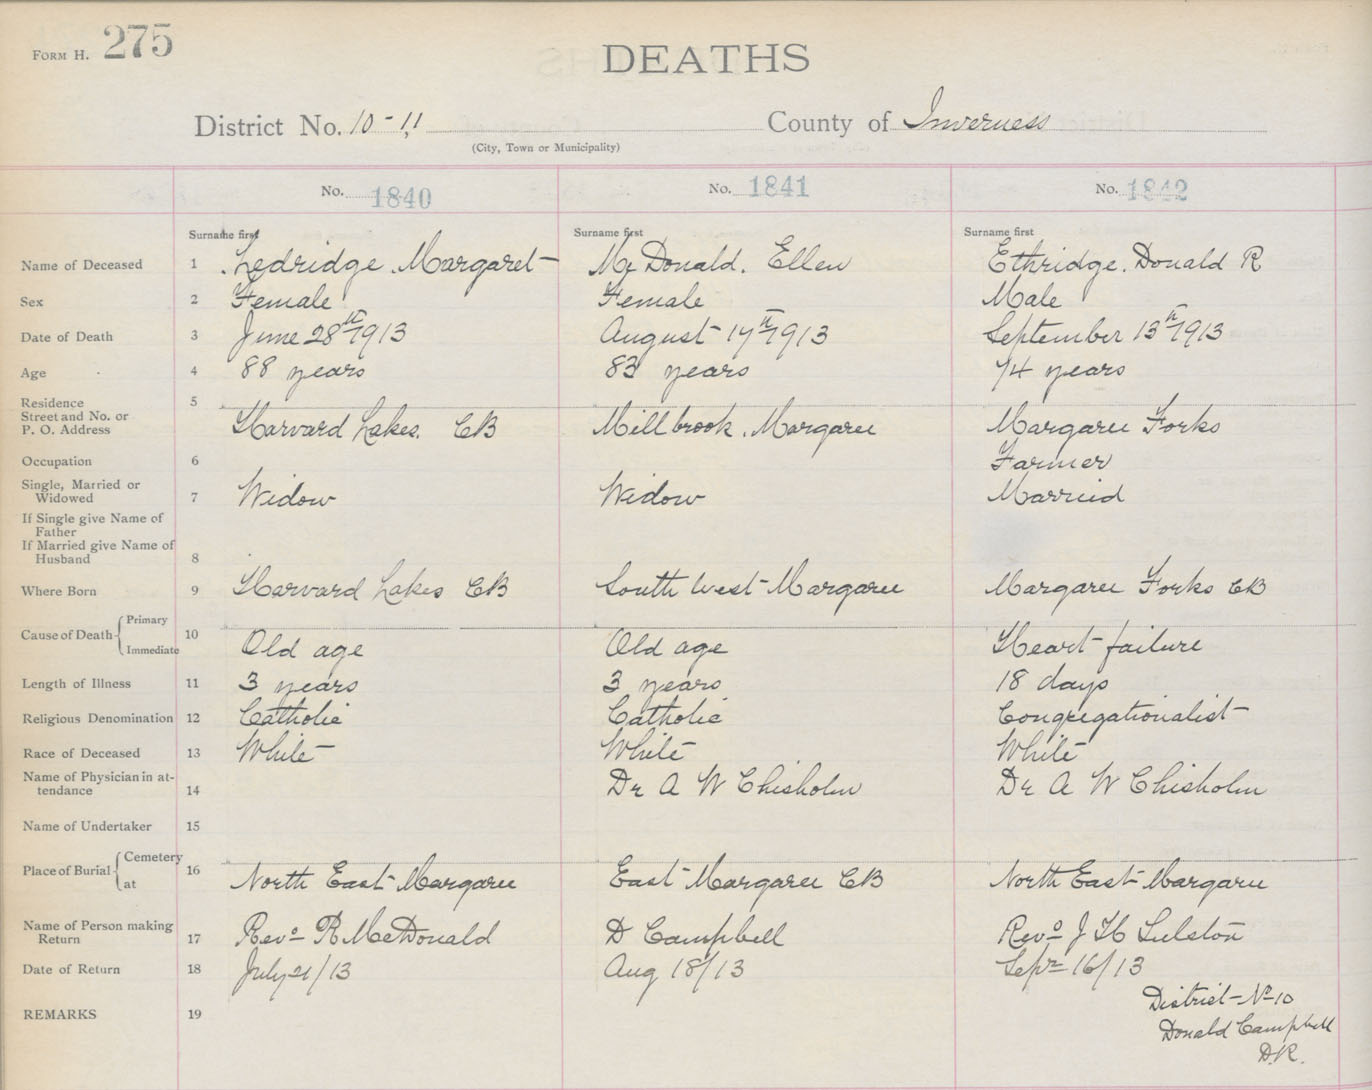 FORM H. 275
DEATHS
District No. 10-11 County of Inverness
(City, Town or Municipality)
No. 1840 No. 1841 No. 1842
Surname first Surname first Surname first
Name of Deceased 1 Ledridge Margaret McDonald. Ellen Ethridge. Donald R
Sex 2 Female Female Male
Date of Death 3 June 28th 1913 August 17th 1913 September 13th 1913
Age 4 88 years 83 years 74 years
Residence 5
Street and No. or
P. O. Address Harvard Lakes. CB Millbrook. Margaree Margaree Forks
Occupation 6 Farmer
Single, Married or
Widowed 7 Widow Widow Married
If Single give Name of
Father
If Married give Name of
Husband 8
Where Born 9 Harvard Lakes CB South West Margaree Margaree Forks CB
Cause of Death Primary
Immediate 10 Old age Old age Heart failure
Length of Illness 11 3 years 3 years 18 days
Religious Denomination 12 Catholic Catholic Congregationalist
Race of Deceased 13 White White White
Name of Physician in at-
tendance 14 Dr A W Chisholm Dr A W Chisholm
Name of Undertaker 15
Place of Burial Cemetery
at 16 North East Margaree East Margaree CB North East Margaree
Name of Person making
Return 17 Revd R McDonald D Campbell Revd J H
Date of Return 18 July 21/13 Aug 18/13 Sept 16/13
REMARKS 19 District No 10
Donald Campbell
D.R.